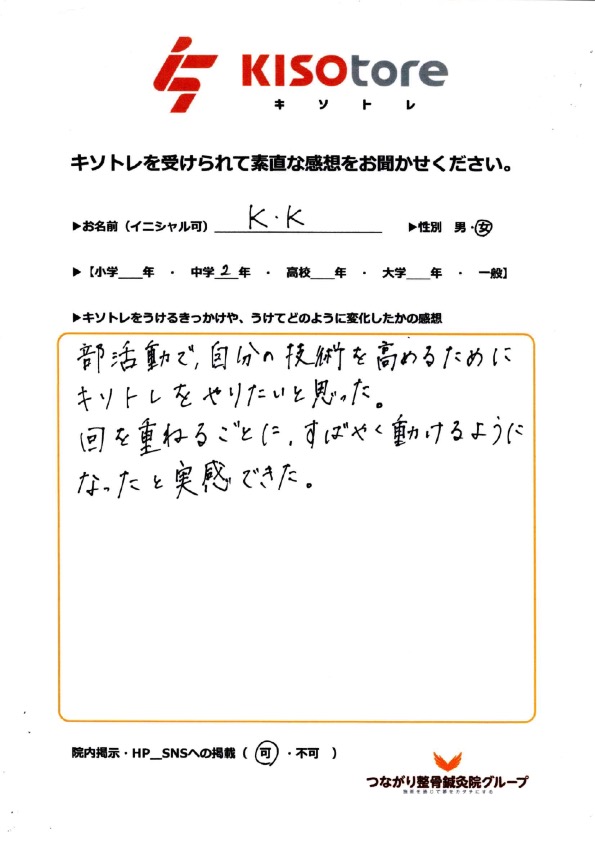 KISOtore
キソトレ
キソトレを受けられて素直な感想をお聞かせください。
▶お名前（イニシャル可） K.K ▶性別 男・女
▶【小学___年 ・ 中学2年 ・ 高校___年 ・ 大学___年 ・ 一般】
▶キソトレをうけるきっかけや、うけてどのように変化したかの感想
部活動で、自分の技術を高めるために
キソトレをやりたいと思った。
回を重ねるごとに、すばやく動けるように
なったと実感できた。
院内掲示・HP__SNSへの掲載（ 可 ・不可 ）
つながり整骨鍼灸院グループ